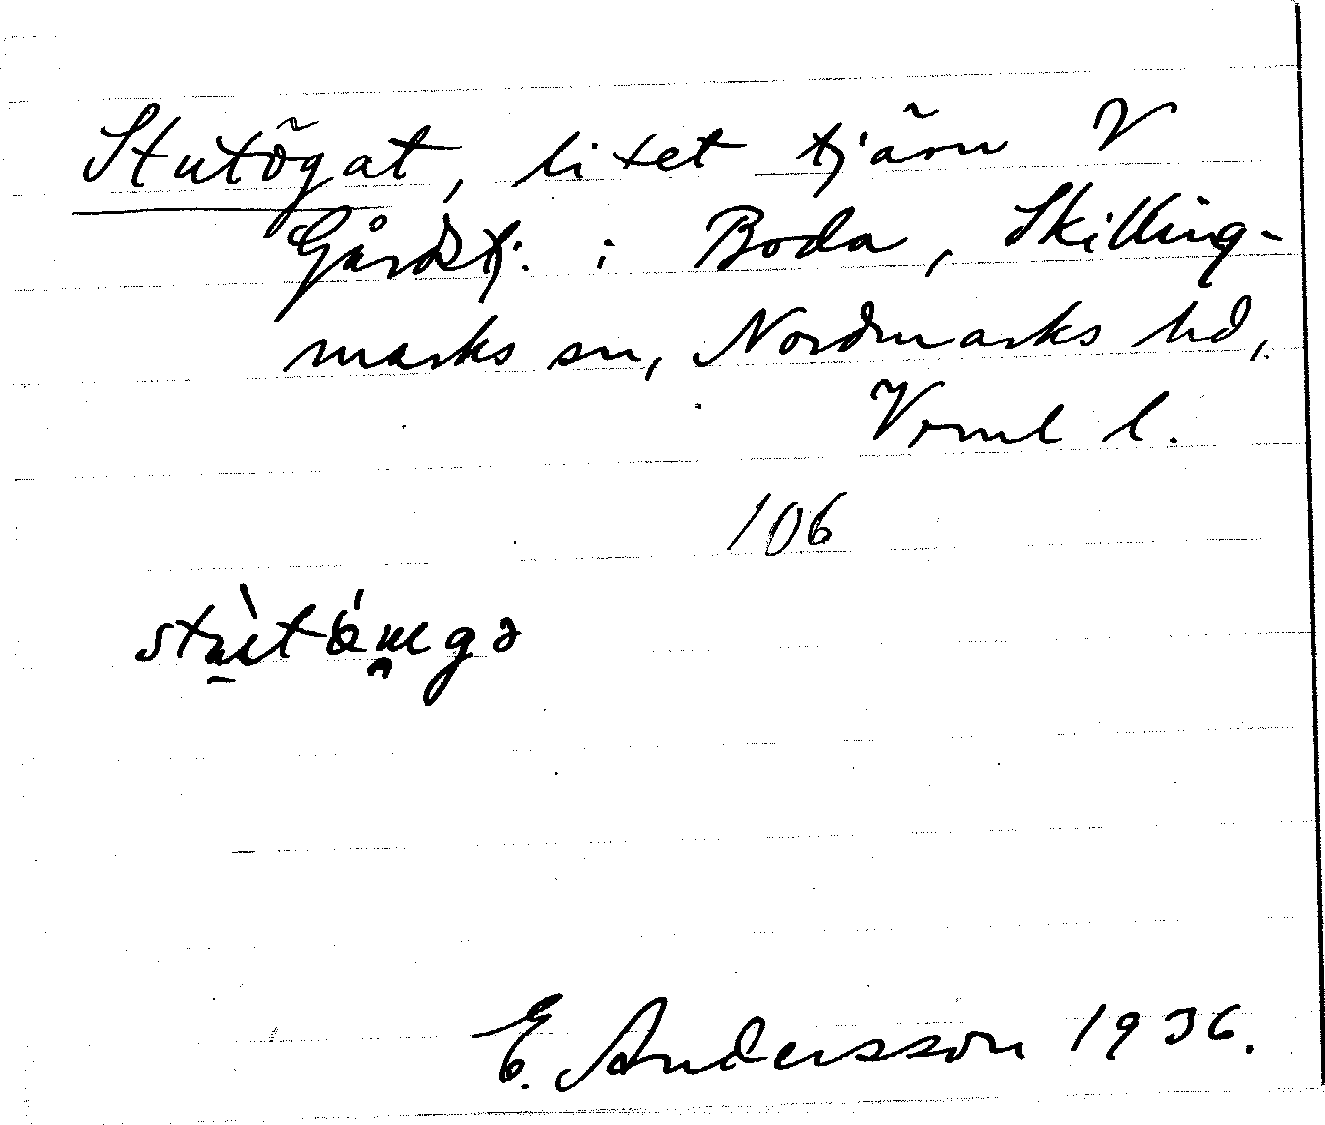 Stutögat, litet tjärn V
Gårdstj. i Boda, Skilling-
marks sn, Nordmarks hd,
Vrml l.
106
E. Andersson 1936.